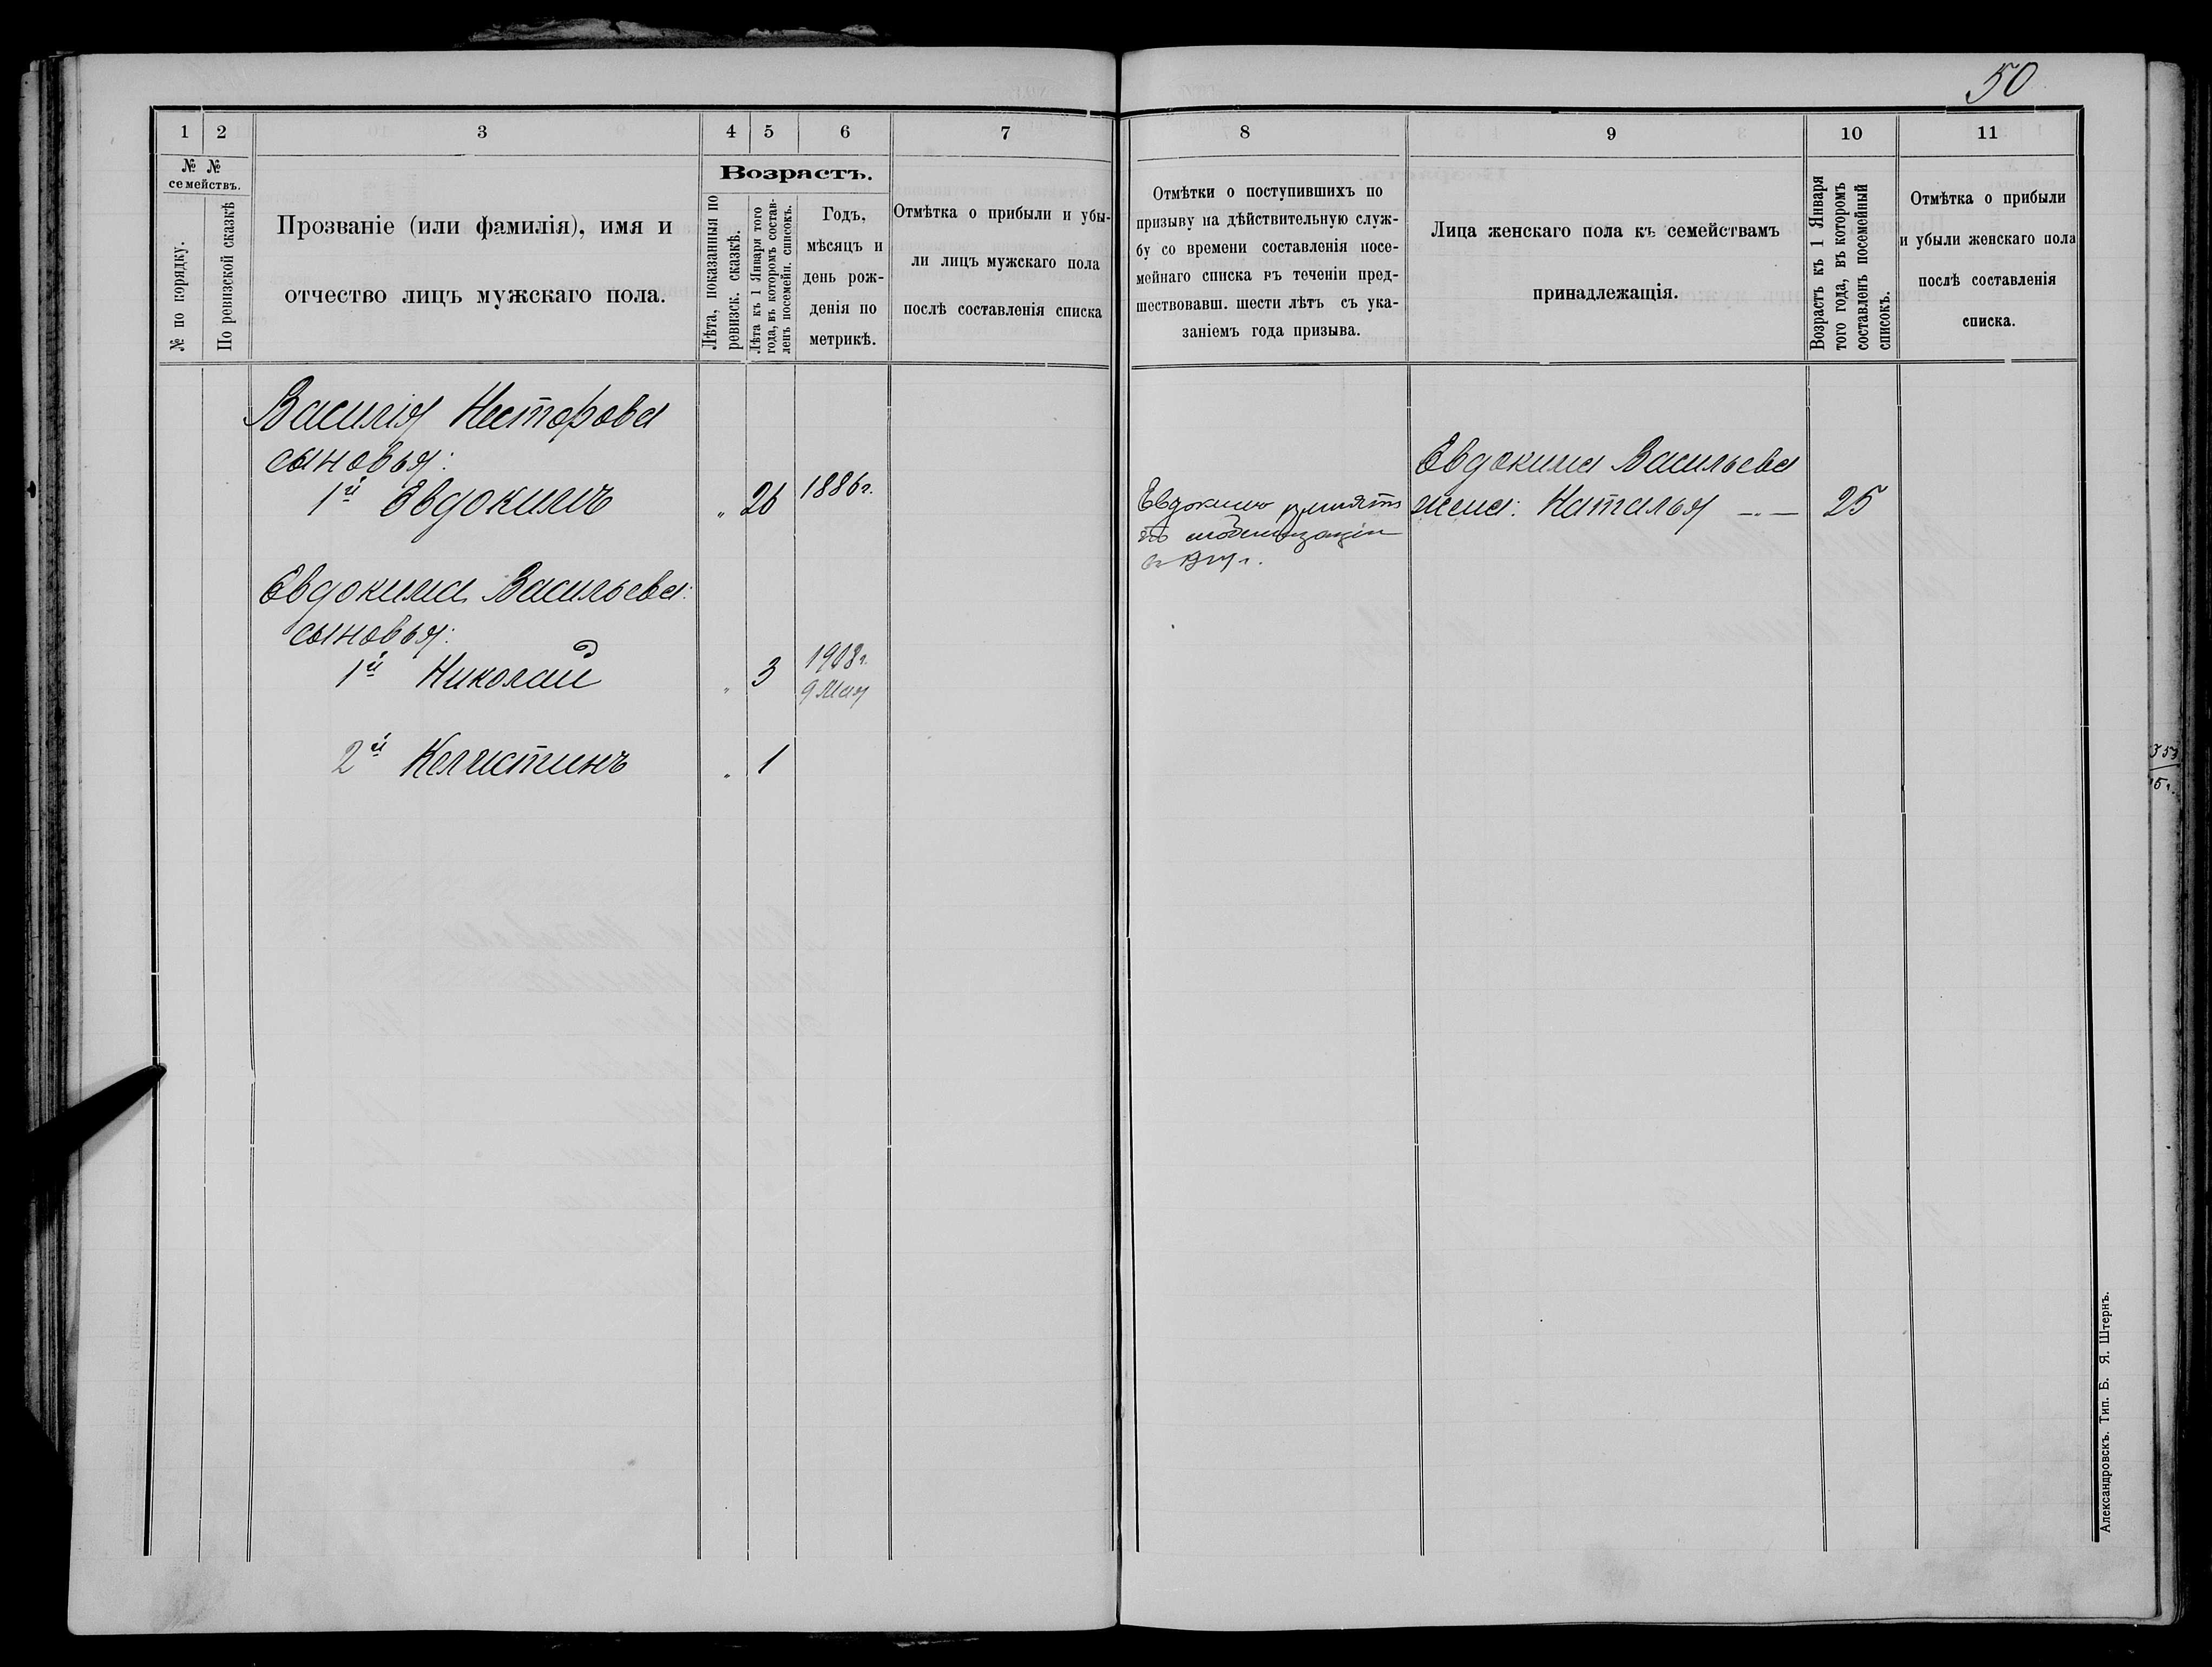 50
1
2
3
4
5
6
7
8
9
10
11
№ №
семействъ.
№ по порядку.
По ревизской сказкѣ
Прозваніе (или фамилія), имя и
отчество лицъ мужскаго пола.
Возрастъ.
Лѣта, показанныя по
ревизск. сказкѣ.
Лѣта къ 1 Января того
года, въ которомъ состав-
ленъ посемейн. списокъ.
Годъ,
мѣсяцъ и
день рож-
денія по
метрикѣ.
Отмѣтка о прибыли и убы-
ли лицъ мужскаго пола
послѣ составленія списка
Отмѣтки о поступившихъ по
призыву на дѣйствительную служ-
бу со времени составленія посе-
мейнаго списка въ теченіи пред-
шествовавш. шести лѣтъ съ ука-
заніемъ года призыва.
Лица женскаго пола къ семействамъ
принадлежащія.
Возрастъ къ 1 Января
того года, въ которомъ
составленъ посемейный
списокъ.
Отмѣтка о прибыли
и убыли женскаго пола
послѣ составленія
списка.
Василія Несторова
сыновья:
1й Евдокимъ " 26 1886г.
Евдокима Васильева:
сыновья:
1й Николай " 3 1908г.
9 Мая
2й " 1
Евдокимъ принятъ
по мобилизаціи
Евдокима Васильева
жена: Наталья — 25
353
Александровскъ. Тип. Б. Я. Штернъ.